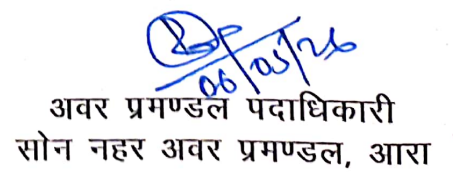 06/05/26
अवर प्रमण्डल पदाधिकारी
सोन नहर अवर प्रमण्डल, आरा